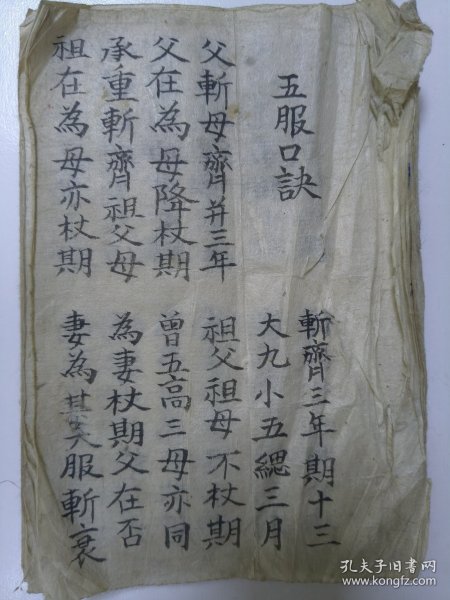 五服口訣
斬齊三年期十三
大九小五緦三月
父斬母齊并三年
祖父祖母不杖期
父在為母降杖期
曾五高三母亦同
承重斬齊祖父母
為妻杖期父在否
祖在為母亦杖期
妻為其夫服斬衰
孔夫子旧书网
www.kongfz.com